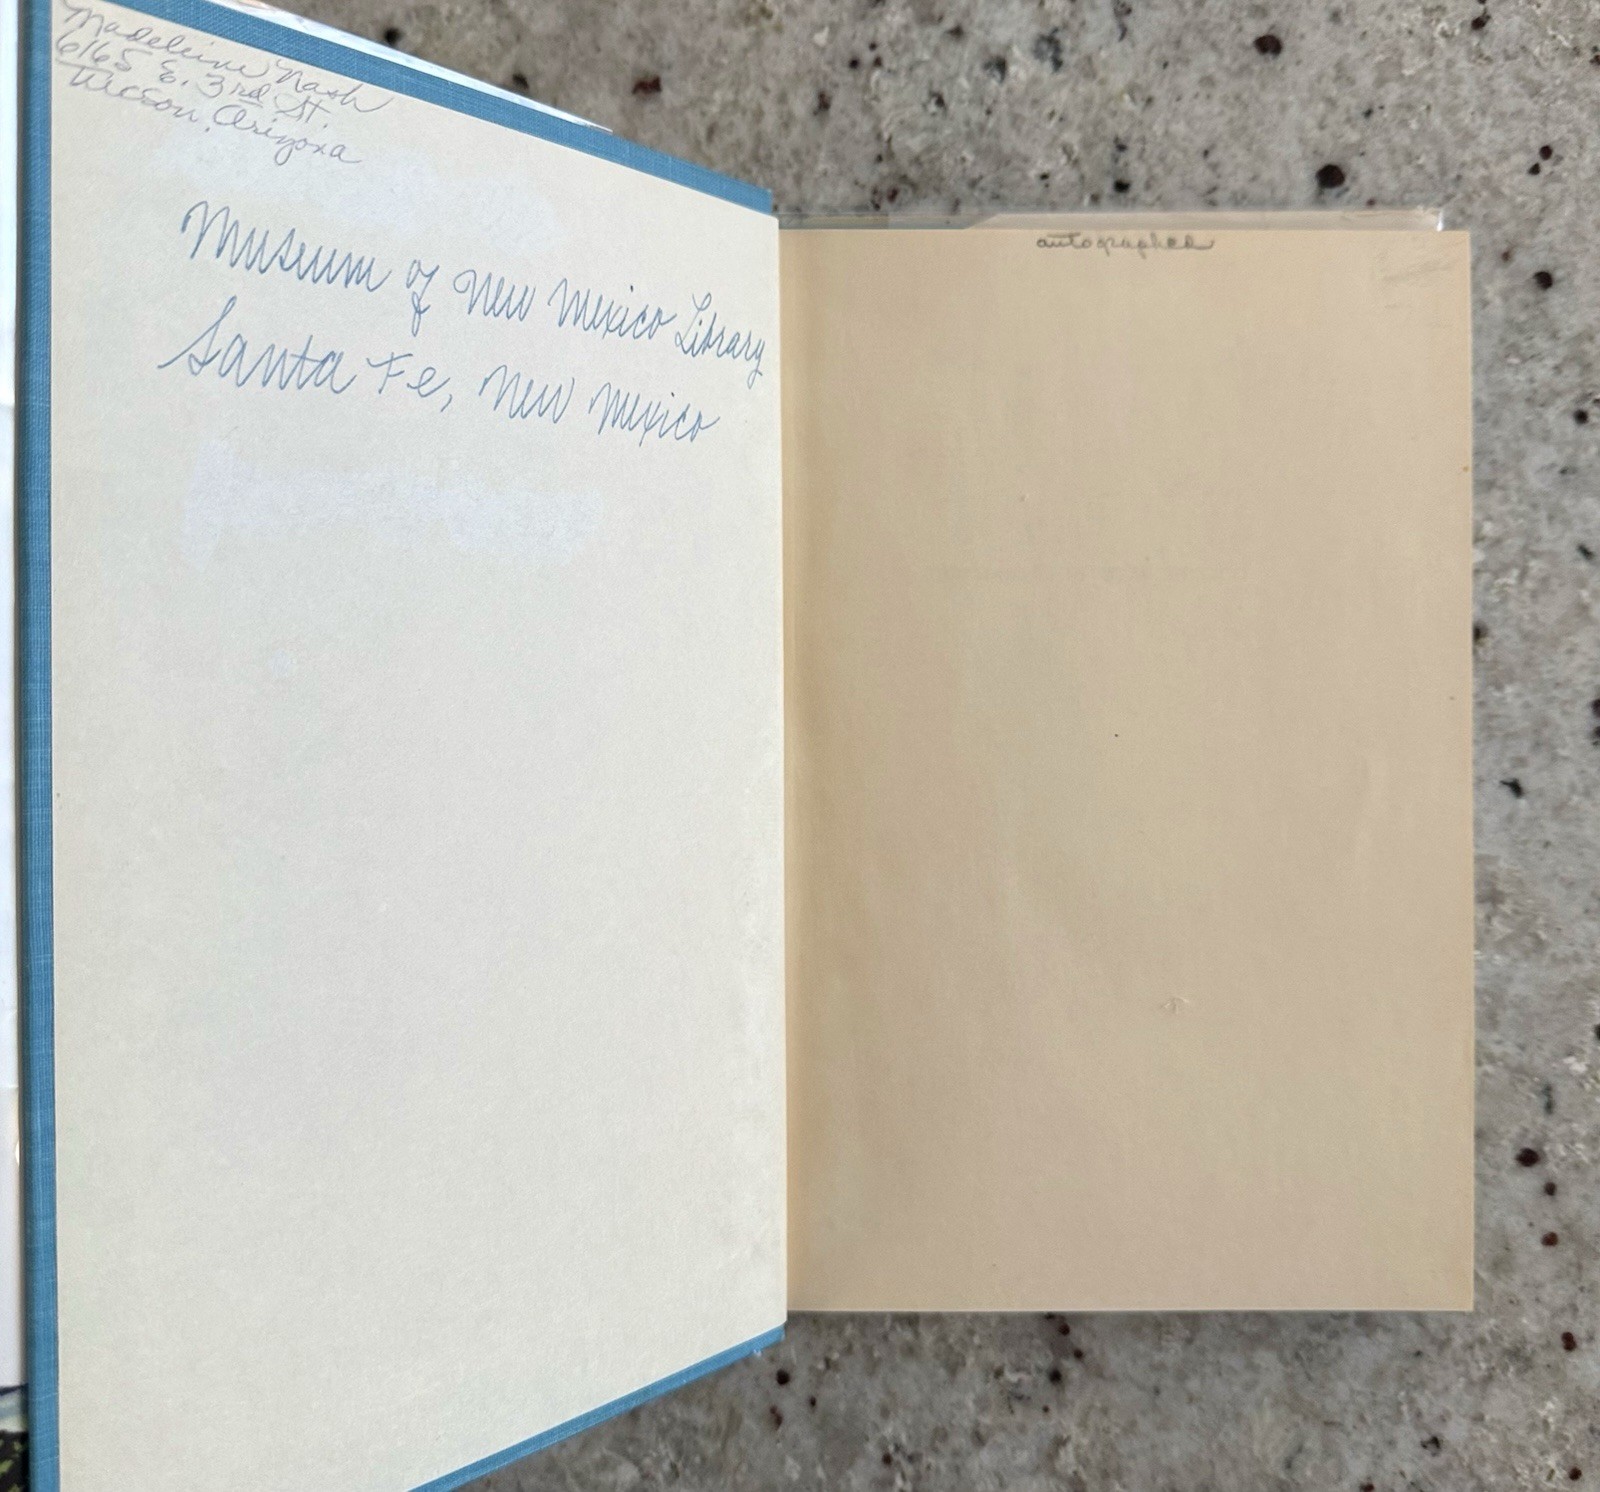 Madeleine Nash
6165 E. 3rd St.
Tucson, Arizona
Museum of New Mexico Library
Santa Fe, New Mexico
autographed